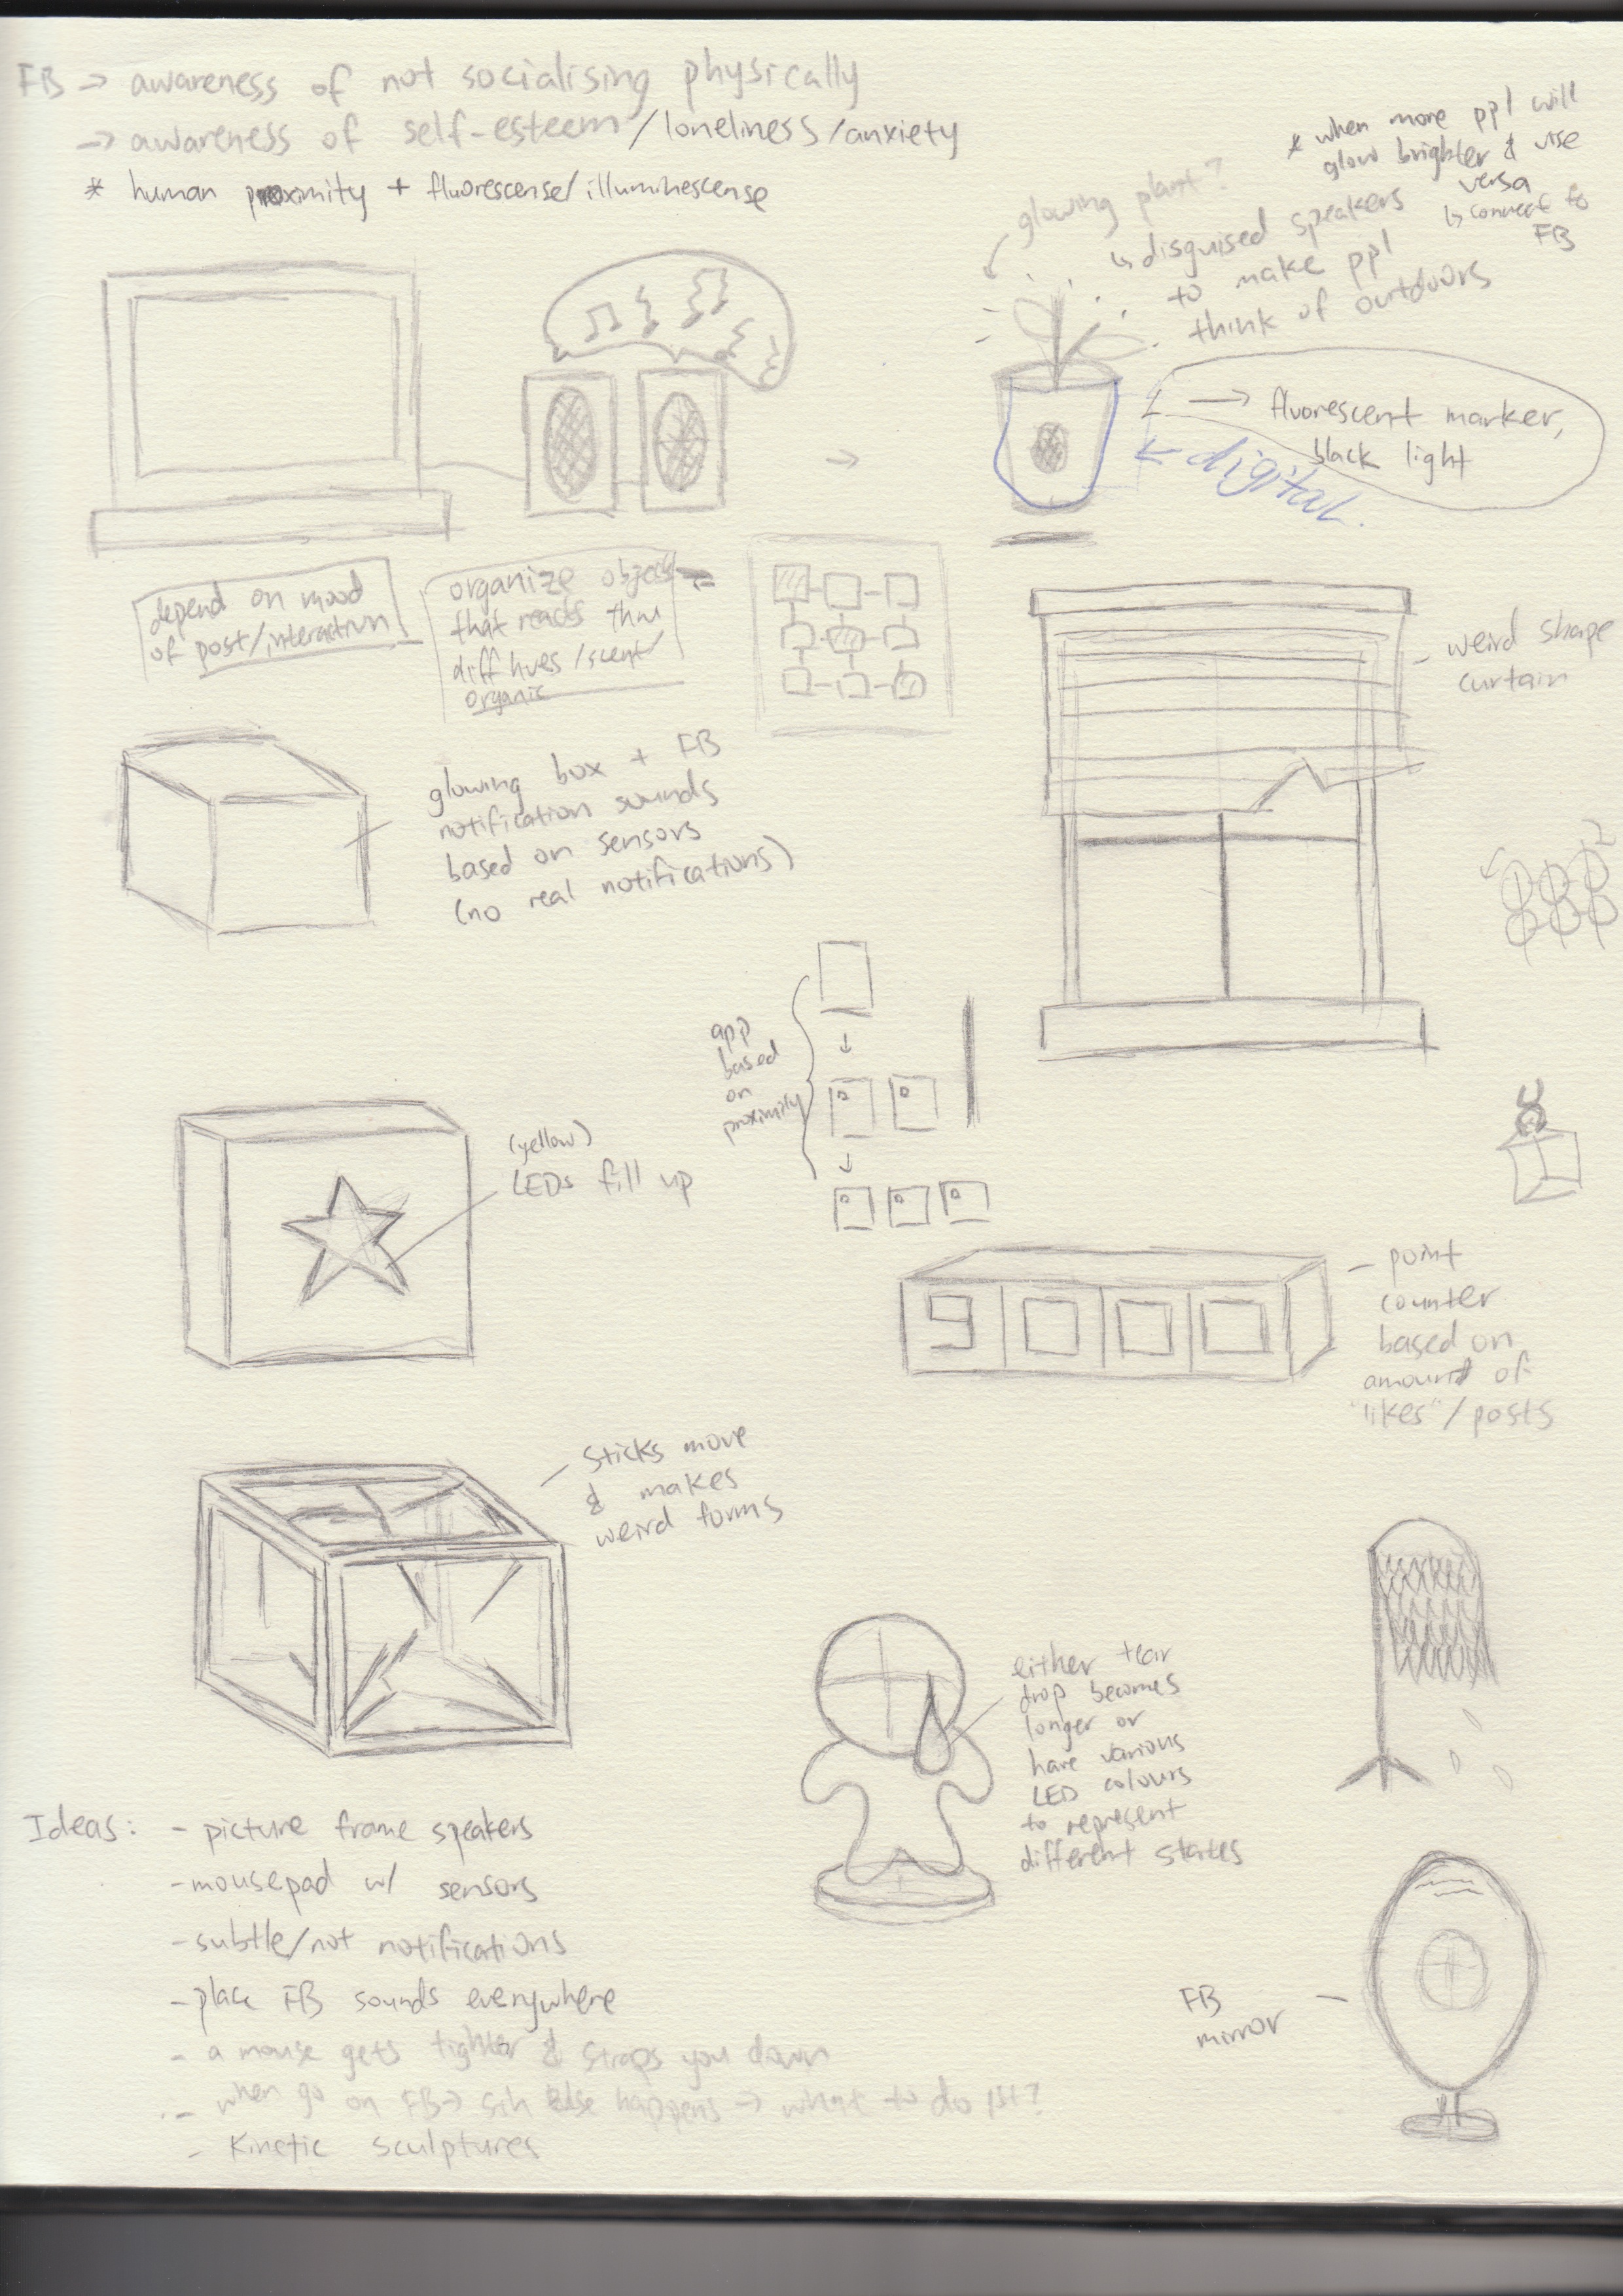 FB → awareness of not socialising physically
→ awareness of self-esteem/loneliness/anxiety
* human proximity + fluorescense/illuminescense
* when more ppl will
glow brighter & vise
versa
↳ connect to
FB
glowing plant?
↳ disguised speakers
to make ppl
think of outdoors
→ fluorescent marker,
black light
← digital.
depend on mood
of post/interaction
organize objects
that reacts thru
diff hues/scent
organic
weird shape
curtain
glowing box + FB
notification sounds
based on sensors
(no real notifications)
app
based
on
proximity
(yellow)
LEDs fill up
9000
point
counter
based on
amount of
"likes"/posts
sticks move
& makes
weird forms
either tear
drop becomes
longer or
have various
LED colours
to represent
different states
Ideas: - picture frame speakers
- mousepad w/ sensors
- subtle/not notifications
- place FB sounds everywhere
- a mouse gets tighter & straps you down
- when go on FB → sth else happens → what to do 1st?
- kinetic sculptures
FB
mirror